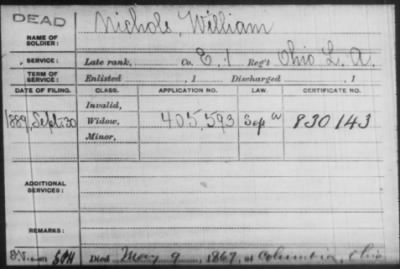 DEAD
Nichols, William
NAME OF SOLDIER:
SERVICE: Late rank, Co. E. 1 Reg't Ohio L. A.
TERM OF SERVICE: Enlisted , 1 Discharged , 1
DATE OF FILING. CLASS. APPLICATION NO. LAW. CERTIFICATE NO.
Invalid,
1889, Sept. 30 Widow, 405,593 830143
Minor,
ADDITIONAL SERVICES:
REMARKS:
Died May 9, 1869, at Columbia, Ohio